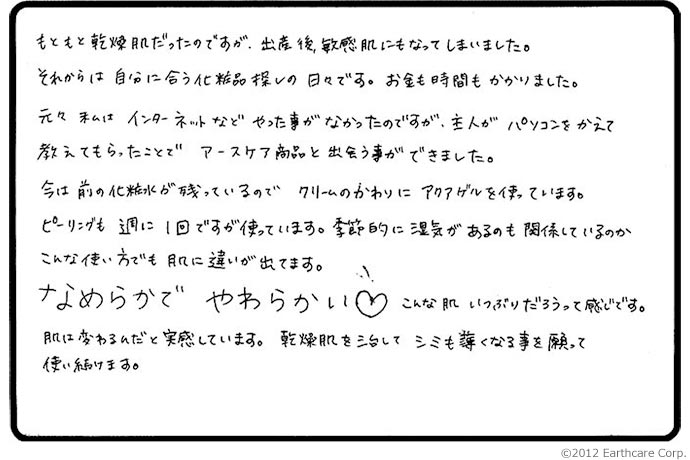 もともと乾燥肌だったのですが、出産後、敏感肌にもなってしまいました。
それからは 自分に合う化粧品探しの 日々です。 お金も時間も かかりました。
元々 私は インターネットなど やった事がなかったのですが、主人が パソコンをかえて
教えてもらったことで アースケア商品と 出会う事ができました。
今は 前の化粧水が残っているので クリームのかわりに アクアゲルを使っています。
ピーリングも 週に 1回ですが使っています。季節的に 湿気があるのも 関係しているのか
こんな使い方でも 肌に 違いが出てます。
なめらかで やわらかい♡!! こんな肌 いつぶりだろうって感じです。
肌は変わるんだと実感しています。 乾燥肌を治して シミも薄くなる事を願って
使い続けます。
©2012 Earthcare Corp.